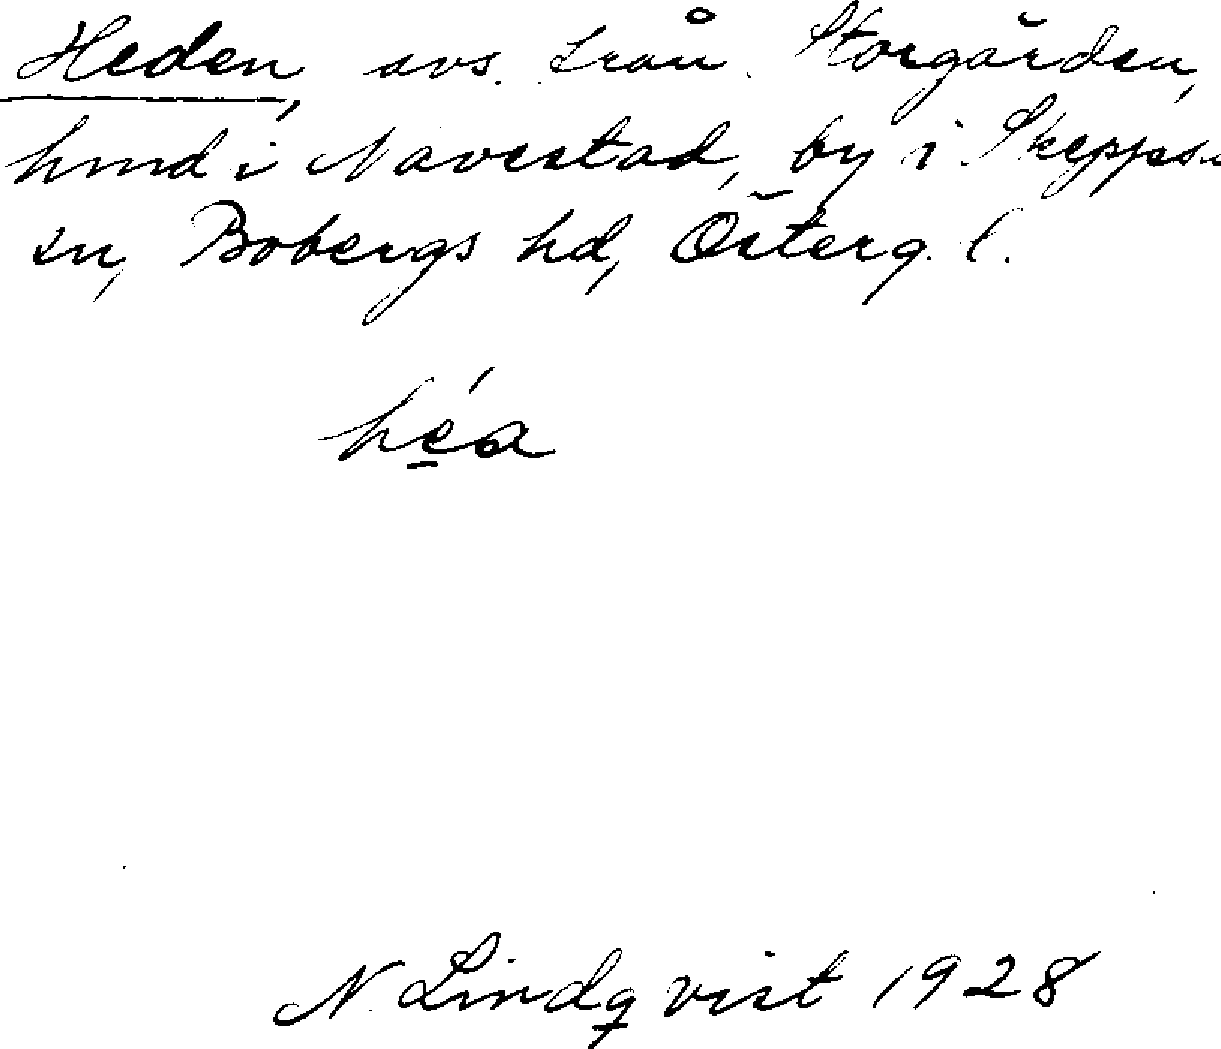 Heden, avs. från Storgården,
hmd i Navestad, by i Skeppsås
sn, Bobergs hd, Österg. l.
héa
N. Lindqvist 1928